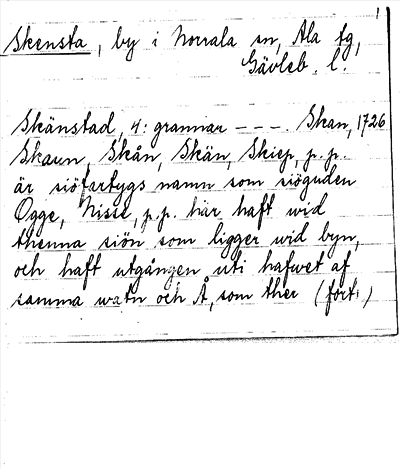 1
Skensta, by i Norrala sn, Ala tg,
Gävleb. l.
Skänstad, 4: grannar - - -. Skan, 1726
Skaun, Skån, Skän, Skiep, p. p.
är siöfartygs namn som siöguden
Ogge, Nisse, p. p. här haft wid
thenna siön som ligger wid byn,
och haft utgången uti hafwet af
samma watn och Å, som ther (forts.)